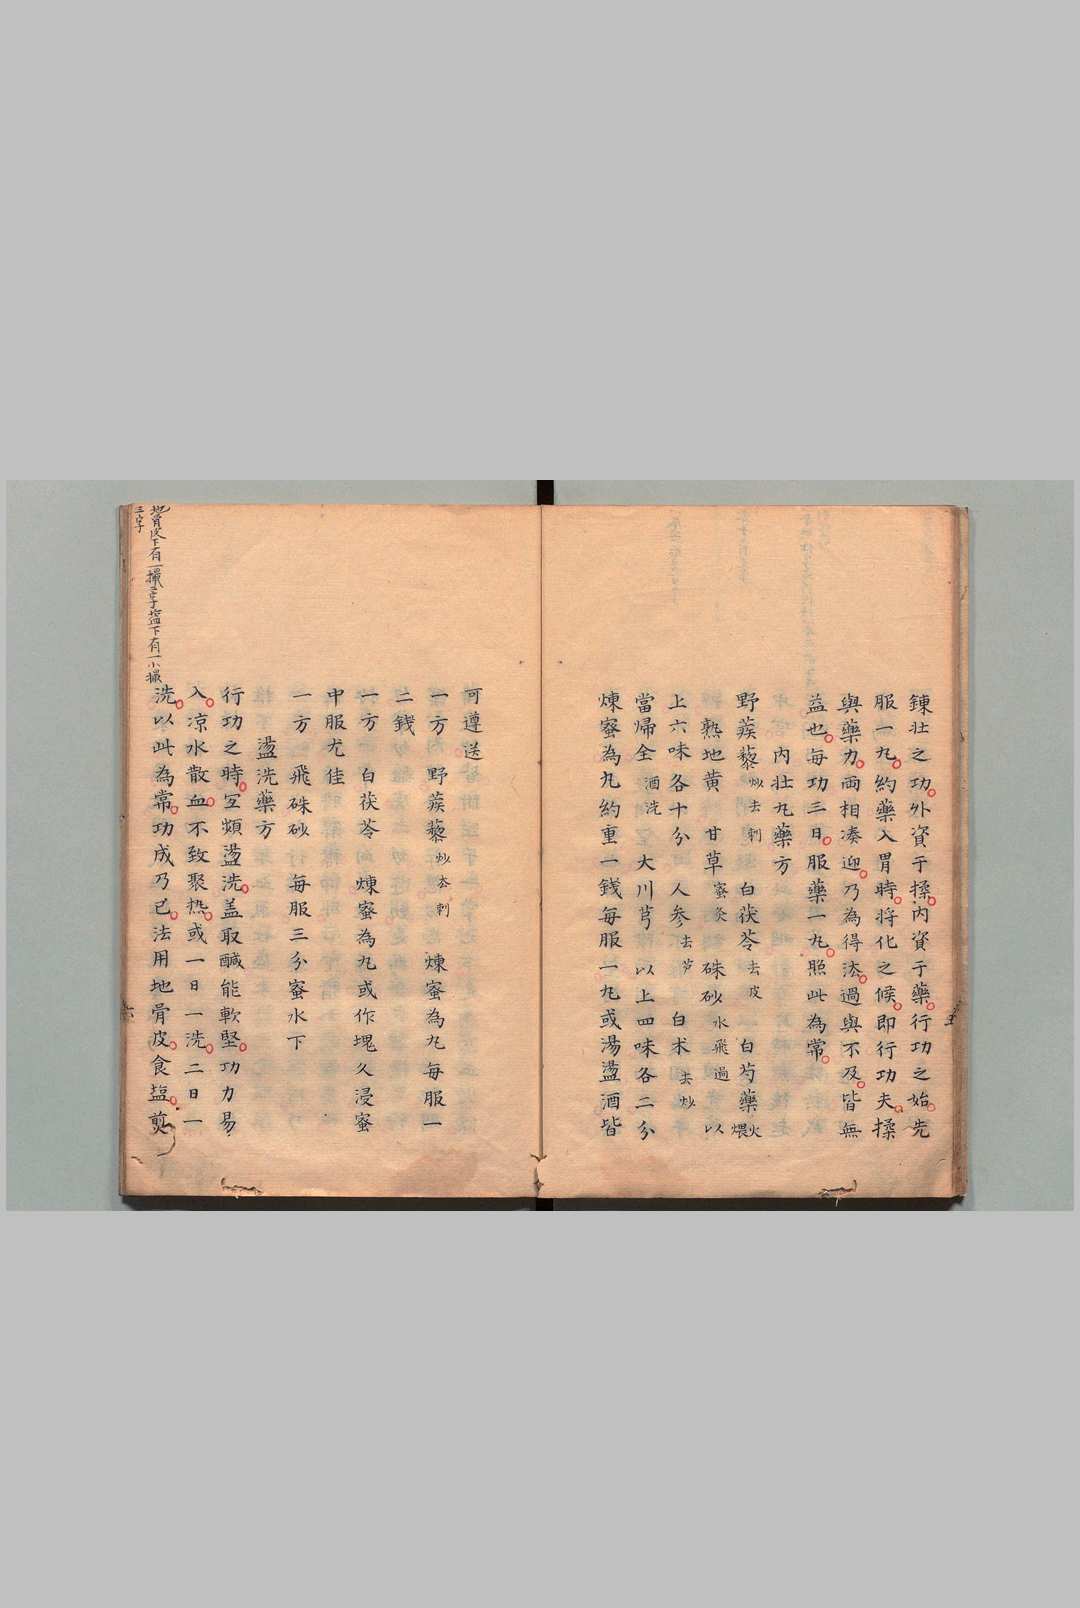 錬壮之功外資于揉内資于藥行功之始先
服一丸約藥入胃時将化之候即行功夫揉
與藥力両相凑迎乃為得法過與不及皆無
益也每功三日服藥一丸照此為常
内壮丸藥方
野蒺藜炒去刺 白茯苓去皮 白芍藥煨火
熟地黄 甘草蜜灸 硃砂水飛過 以
上六味各十分 人参去芦 白术去炒
當帰全酒洗 大川芎 以上四味各二分
煉蜜為丸約重一錢每服一丸或湯盪酒皆
可遵送
一方 野蒺藜炒去刺 煉蜜為丸每服一
二錢
一方 白茯苓 煉蜜為丸或作塊久浸蜜
中服尤佳
一方 飛硃砂 每服三分蜜水下
盪洗藥方
行功之時宜頻盪洗盖取醎能軟堅功力易
入凉水散血不致聚热或一日一洗二日一
洗以此為常功成乃已法用地骨皮食塩煎
地骨皮下有一撮二字塩下有一小撮
三字
五
六